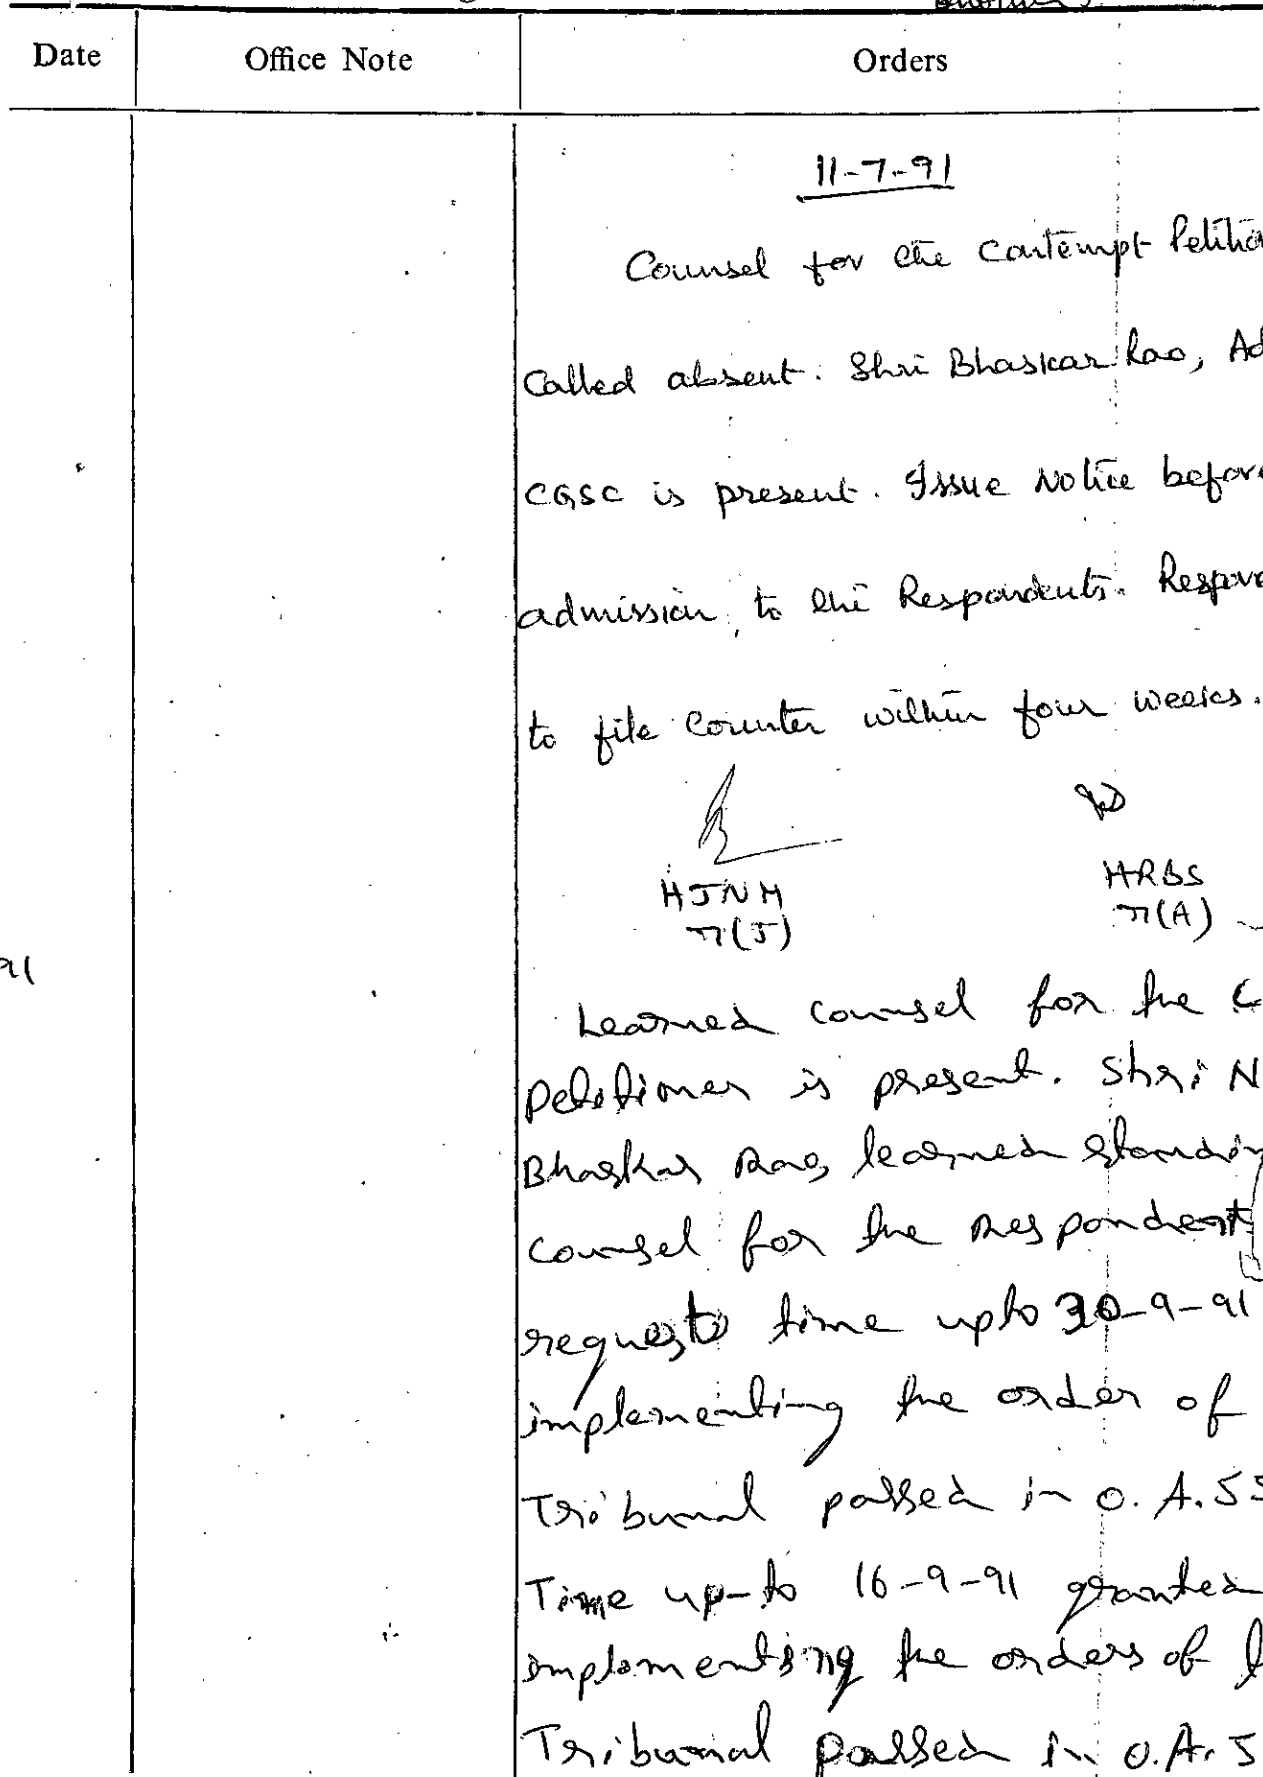 Date Office Note Orders
11-7-91
Counsel for the Contempt Petitio
Called absent. Shri Bhaskar Rao, Ad
CGSC is present. Issue Notice before
admission, to the Respondents. Respon
to file Counter within four weeks.
HJNM HRBS
M(J) M(A)
91
Learned counsel for the C
Petitioner is present. Shri N
Bhaskar Rao, learned standing
counsel for the Respondent
requests time upto 30-9-91
implementing the order of
Tribunal passed in O.A. 55
Time up-to 16-9-91 granted
implementing the orders of
Tribunal passed in O.A. 5